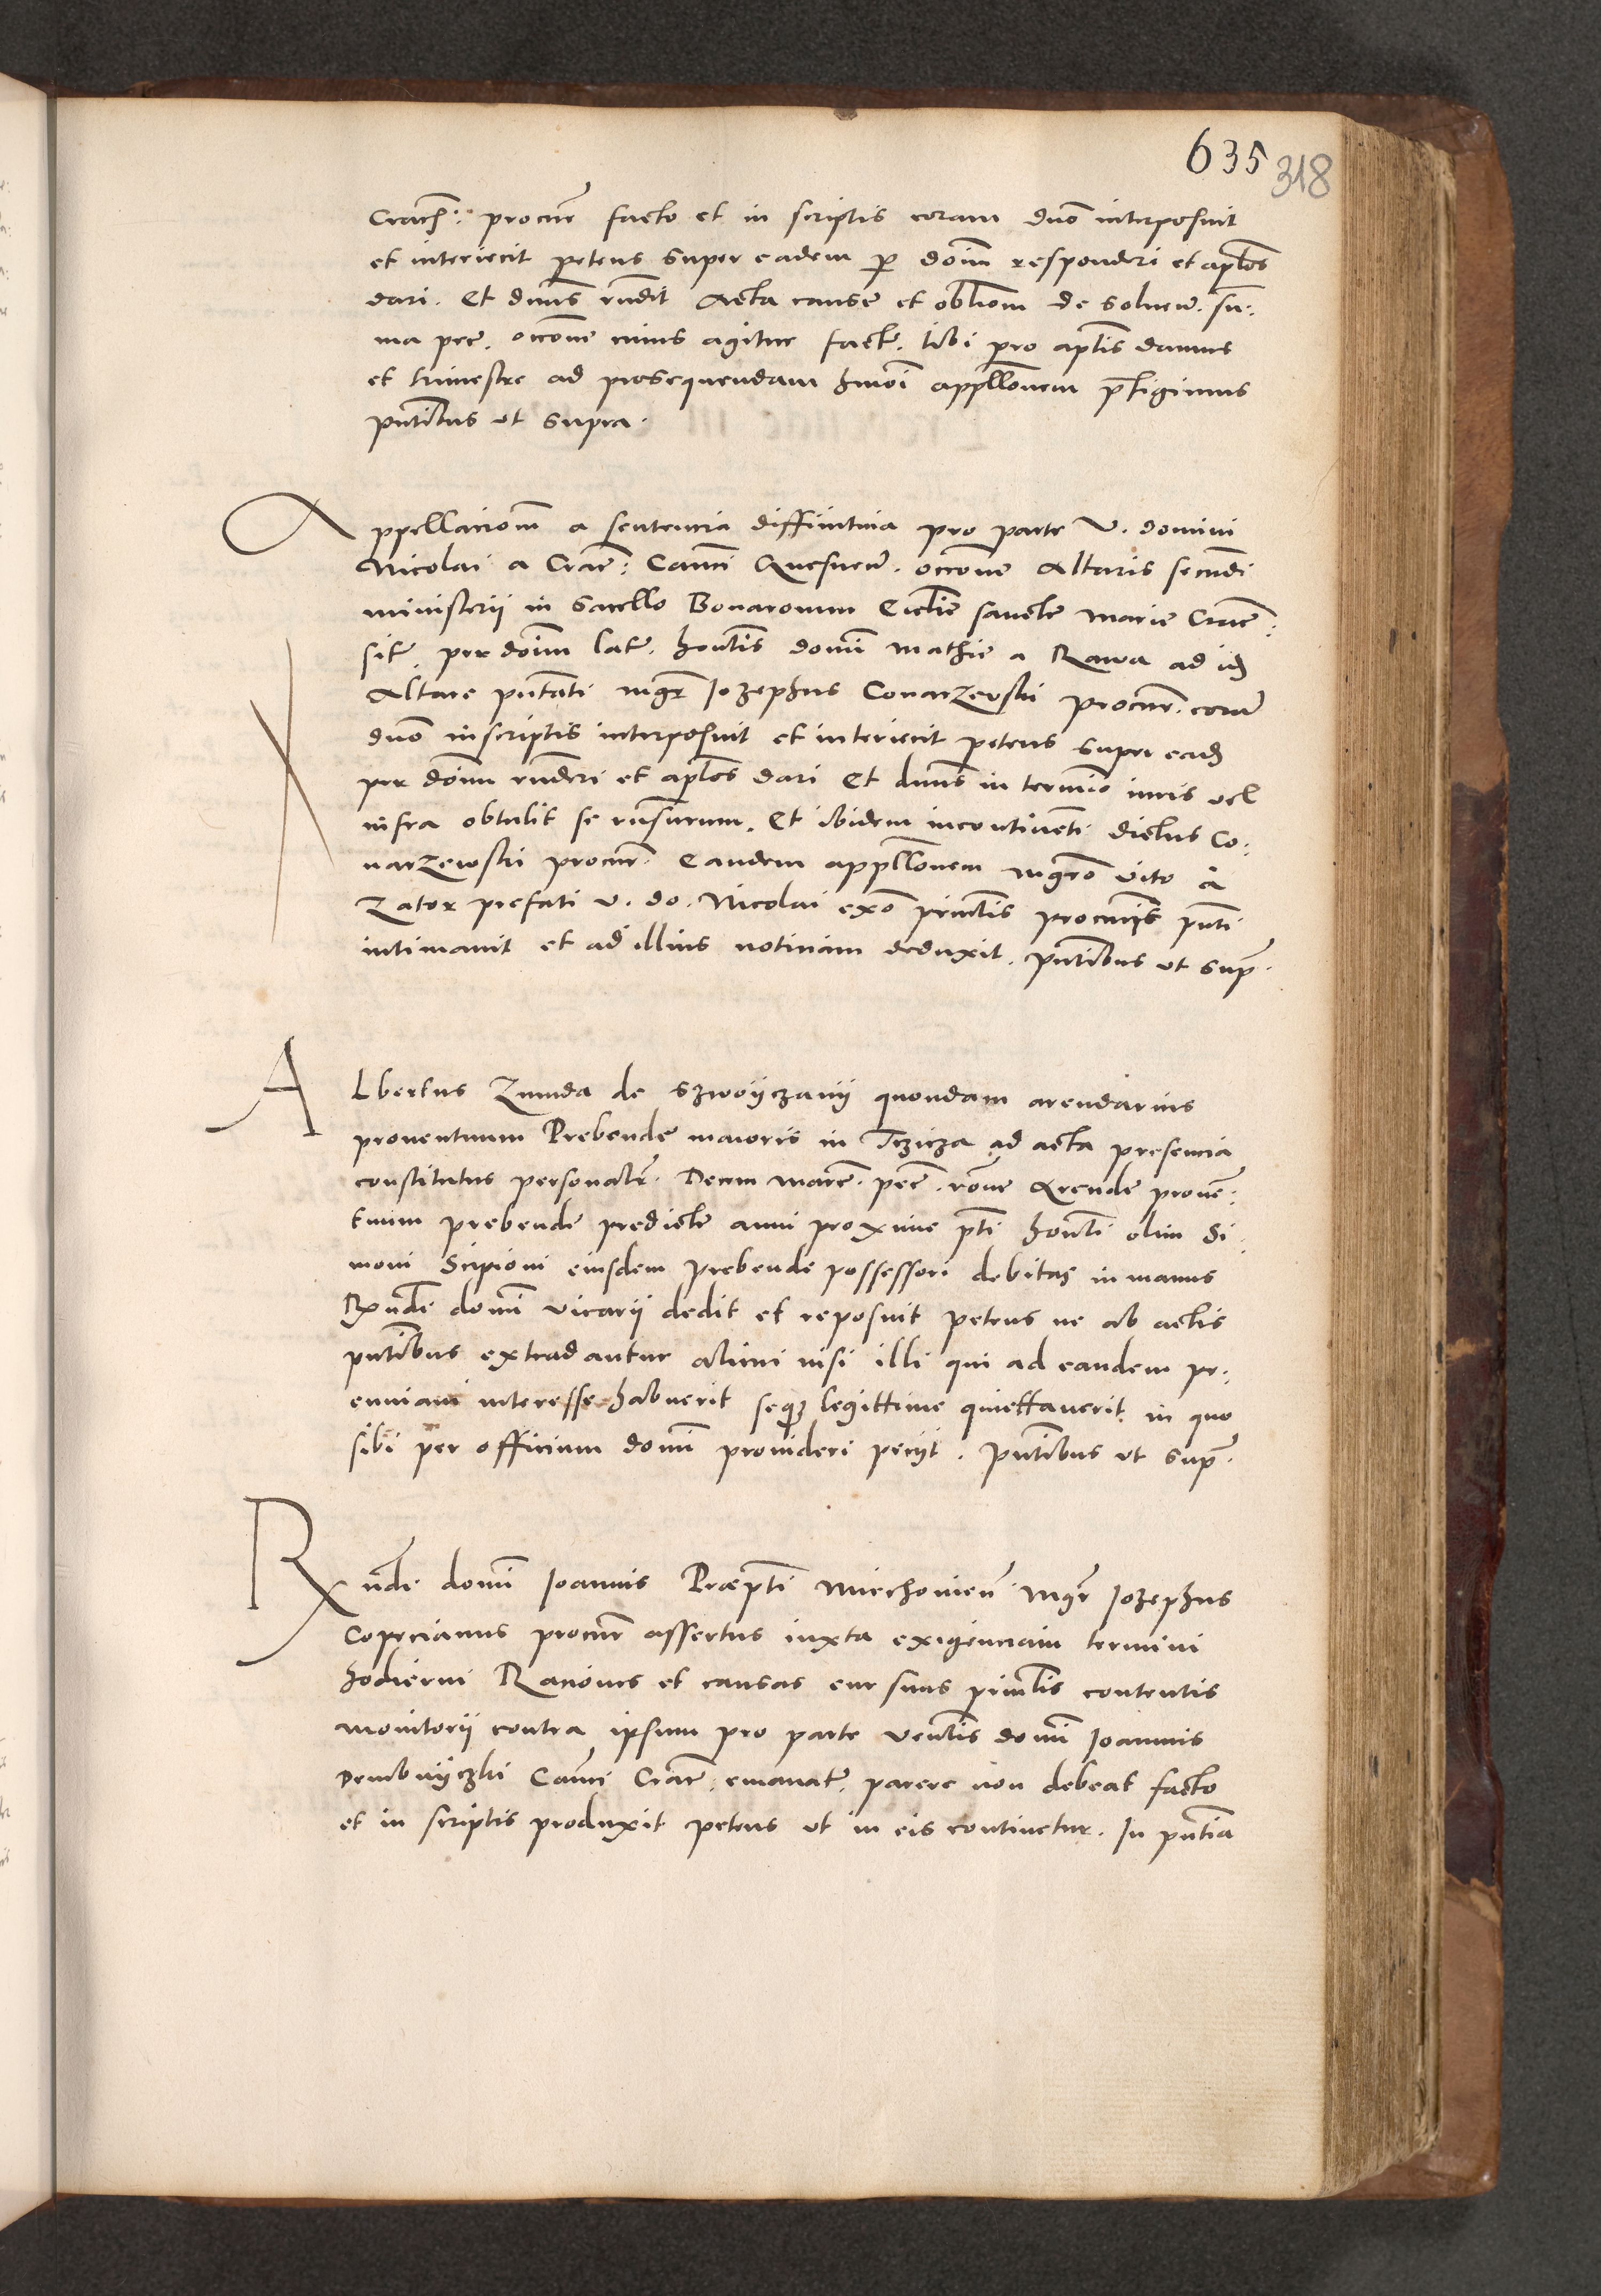 635 318
Cracħ: procur̃ facto et in scriptis coram dno interposuit
et interiecit petens super eadem p̲ dom̃ responderi et apl̃os
dari. Et dnus rñdit Acta cause et obl̃iom de soluen̄. su:
ma pec̃. occõne cuius agitur fact. tibi pro apl̃is damus
et trimestre ad prosequendam hm̃oi appll̃onem p̃figimus
pñtibus ut supra.
Appellacion̄ a sentencia diffinitiua pro parte V. domini
Nicolai a Crac̃: Can̄ci Quesuen̄. occõne Altaris secundi
ministerii in Sacello Bonarorum Ecclie̜ sancte̜ Marie Crac̃:
sit̃. per dom̃ lat̃. hon̄tis domĩ Mathie a Rawa ad id̃
Altare pn̄tati mgr̃ Iozephus Conarzewski procur̃. corã
dno in scriptis interposuit et interiecit petens super ead̃
per dom̃ rñderi et apl̃os dari Et dnũs in termĩo iuris vel
infra obtulit se rñsurum. Et ibidem incontinenti dictus Co:
narzewski procur̃. Eandem appll̃onem mgr̃o Vito à
Zator prefati V. do. Nicolai ex̃o principl̃is procur̃is pn̄ti
intimauit et ad illius notitiam deduxit. pñtibus ut sup̃.
Albertus Zmuda de Szwoÿczanÿ quondam arendarius
prouentuum Prebende̜ maioris in Tczicza ad acta presencia
constitutus personalr̃. Decem marc̃. pec̃. rõne Arende̜ prouen:
tuum prebende̜ predicte̜ anni proxime p̃ti hon̄ti olim Si:
moni Scipioni eiusdem Prebende̜ possessori debitas in manus
Rx̃ndi domĩ vicarii dedit et reposuit petens ne ab actis
pñtibus extradantur alicui nisi illi qui ad eandem pe:
cuniam interesse habuerit seqз legittime quiettauerit in quo
sibi per officium domĩ prouideri peciit. Pñtibus ut sup̃.
Rx̃ndi domĩ Ioannis Præpti Miechouien̄. Mgr̃ Iozephus
Copecianus procur̃ assertus iuxta exigenciam termini
hodierni Raciones et causas cur suus principl̃is contentis
monitorii contra ipsum pro parte Ven̄tis domĩ Ioannis
Dembniÿczki Can̄ci Crac̃. emanat̃. parere non debeat facto
et in scriptis produxit petens ut in eis continetur. In pñtia